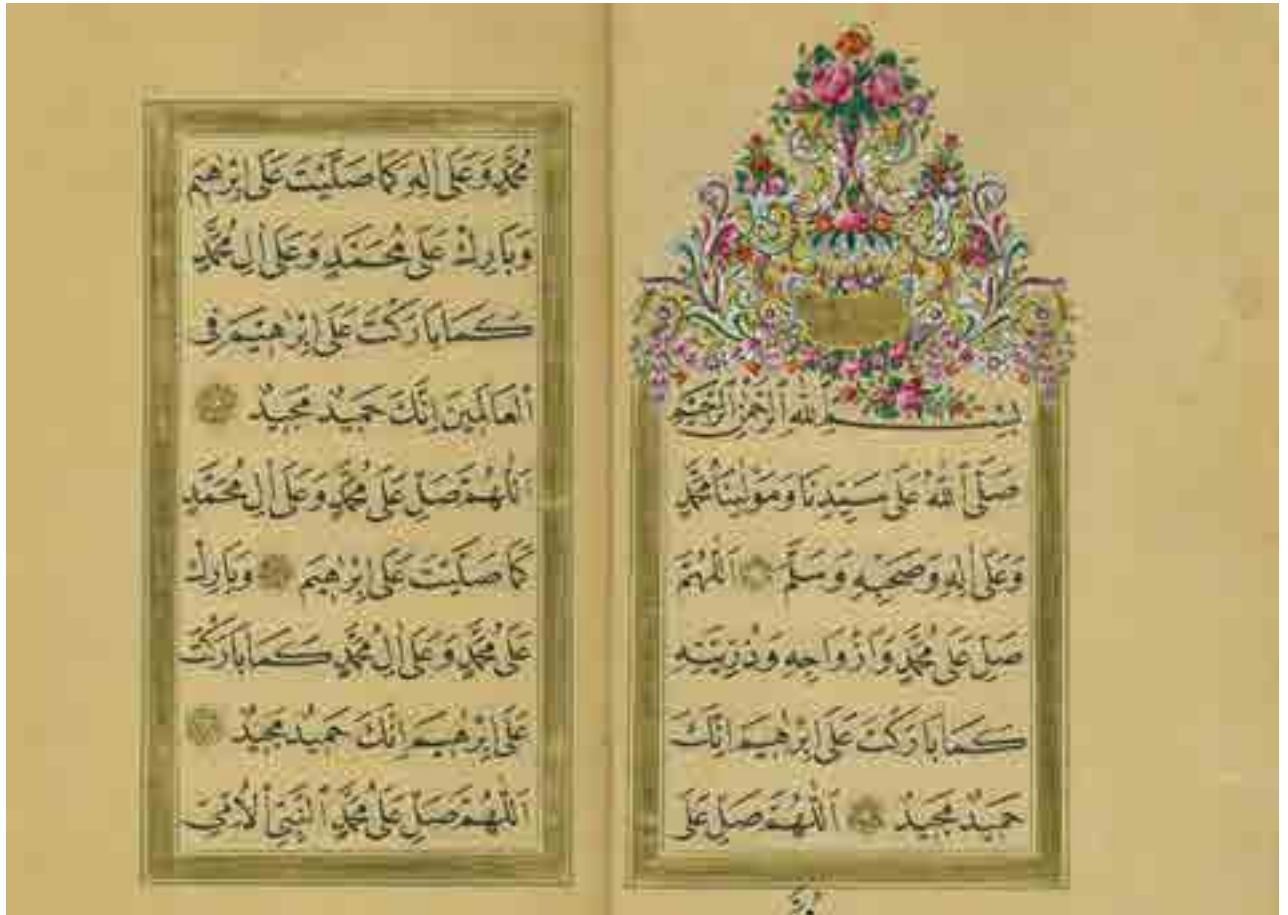 بِسْمِ اللّٰهِ الرَّحْمٰنِ الرَّحِيمِ
صَلَّى اللّٰهُ عَلَى سَيِّدِنَا وَمَوْلٰينَا مُحَمَّدٍ
وَعَلَى اٰلِهِ وَصَحْبِهِ وَسَلَّمَ اَللّٰهُمَّ
صَلِّ عَلَى مُحَمَّدٍ وَاَزْوَاجِهِ وَذُرِّيَّتِهِ
كَمَا بَارَكْتَ عَلَى اِبْرٰهِيمَ اِنَّكَ
حَمِيدٌ مَجِيدٌ اَللّٰهُمَّ صَلِّ عَلَى
مُحَمَّدٍ وَعَلَى اٰلِهِ كَمَا صَلَّيْتَ عَلَى اِبْرٰهِيمَ
وَبَارِكْ عَلَى مُحَمَّدٍ وَعَلَى اٰلِ مُحَمَّدٍ
كَمَا بَارَكْتَ عَلَى اِبْرٰهِيمَ فِي
الْعَالَمِينَ اِنَّكَ حَمِيدٌ مَجِيدٌ
اَللّٰهُمَّ صَلِّ عَلَى مُحَمَّدٍ وَعَلَى اٰلِ مُحَمَّدٍ
كَمَا صَلَّيْتَ عَلَى اِبْرٰهِيمَ وَبَارِكْ
عَلَى مُحَمَّدٍ وَعَلَى اٰلِ مُحَمَّدٍ كَمَا بَارَكْتَ
عَلَى اِبْرٰهِيمَ اِنَّكَ حَمِيدٌ مَجِيدٌ
اَللّٰهُمَّ صَلِّ عَلَى مُحَمَّدٍ النَّبِيِّ الْاُمِّيِّ